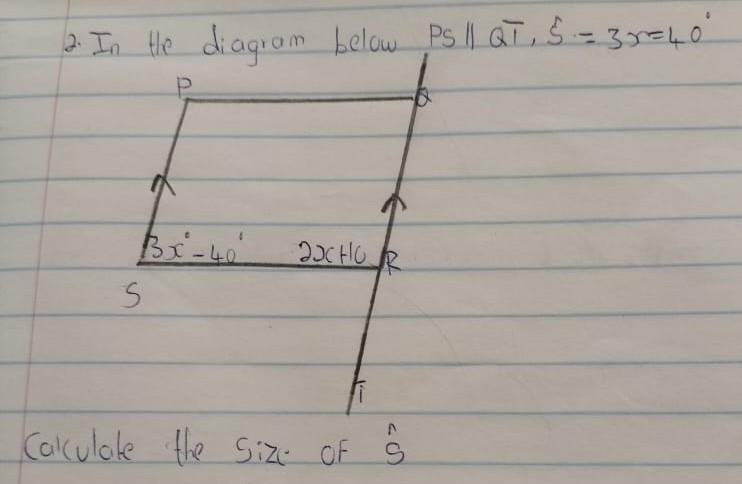 2. In the diagram below PS || QT, Ŝ = 3x=40°
P
Q
3x°-40° 2x+10 R
S
T
Calculate the size of Ŝ